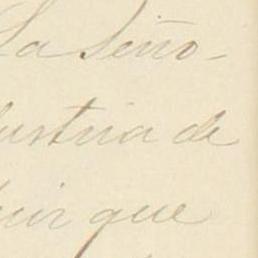 La Seño-
dustria de
que